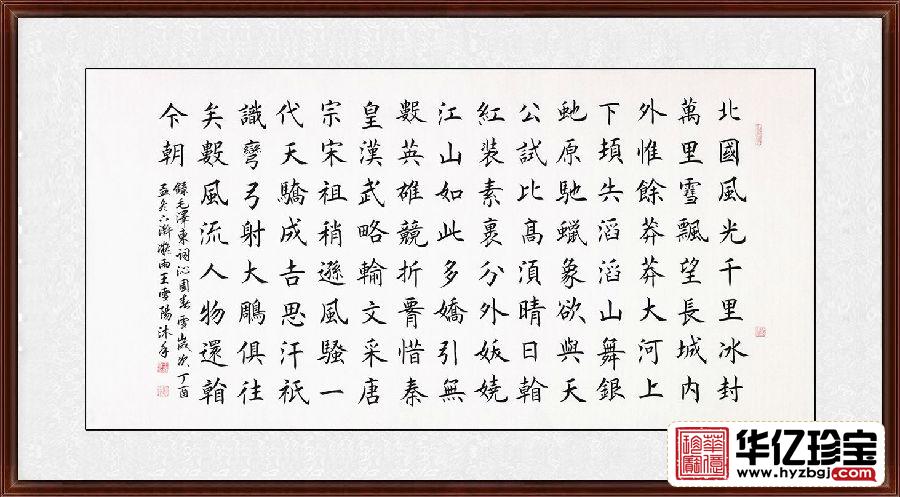 北國風光千里冰封
萬里雪飄望長城内
外惟餘莽莽大河上
下頓失滔滔山舞銀
虵原馳蠟象欲與天
公試比高須晴日看
紅裝素裹分外妖嬈
江山如此多嬌引無
數英雄競折腰惜秦
皇漢武略輸文采唐
宗宋祖稍遜風騷一
代天驕成吉思汗祇
識彎弓射大鵰俱往
矣數風流人物還看
今朝
錄毛澤東詞沁園春雪歲次丁酉
孟冬 凝雨王雪陽沐手
华亿珍宝
www.hyzbgj.com